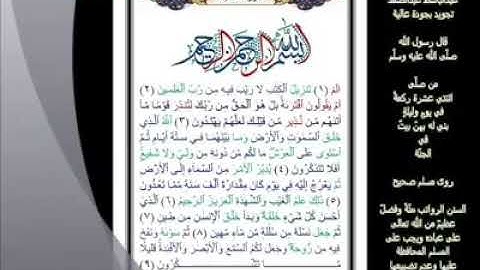 بسم الله الرحمن الرحيم
الم (١) تنزيل الكتب لا ريب فيه من رب العلمين (٢)
ام يقولون افترىة بل هو الحق من ربك لتنذر قوما ما
اتىهم من نذير من قبلك لعلهم يهتدون (٣) الله الذي
خلق السموت والأرض وما بينهما في ستة أيام ثم
استوى على العرش ما لكم من دونه من ولي ولا شفيع
أفلا تتذكرون (٤) يدبر الأمر من السماء إلى الأرض
ثم يعرج إليه في يوم كان مقداره ألف سنة مما تعدون
(٥) ذلك علم الغيب والشهدة العزيز الرحيم (٦) الذي
أحسن كل شيء خلقه وبدأ خلق الإنسن من طين (٧)
ثم جعل نسله من سللة من ماء مهين (٨) ثم سوىه ونفخ
فيه من روحه وجعل لكم السمع والأبصر والأفئدة قليلا
تجويد بجودة عالية
قال رسول الله
صلى الله عليه وسلم
من صلى
اثنتي عشرة ركعة
في يوم وليلة
بني له بهن بيت
في
الجنة
روى مسلم صحيح
السنن الرواتب منة وفضل
عظيم من الله تعالى
على عباده ويجب على
المسلم المحافظة
عليها وعدم تضييعها